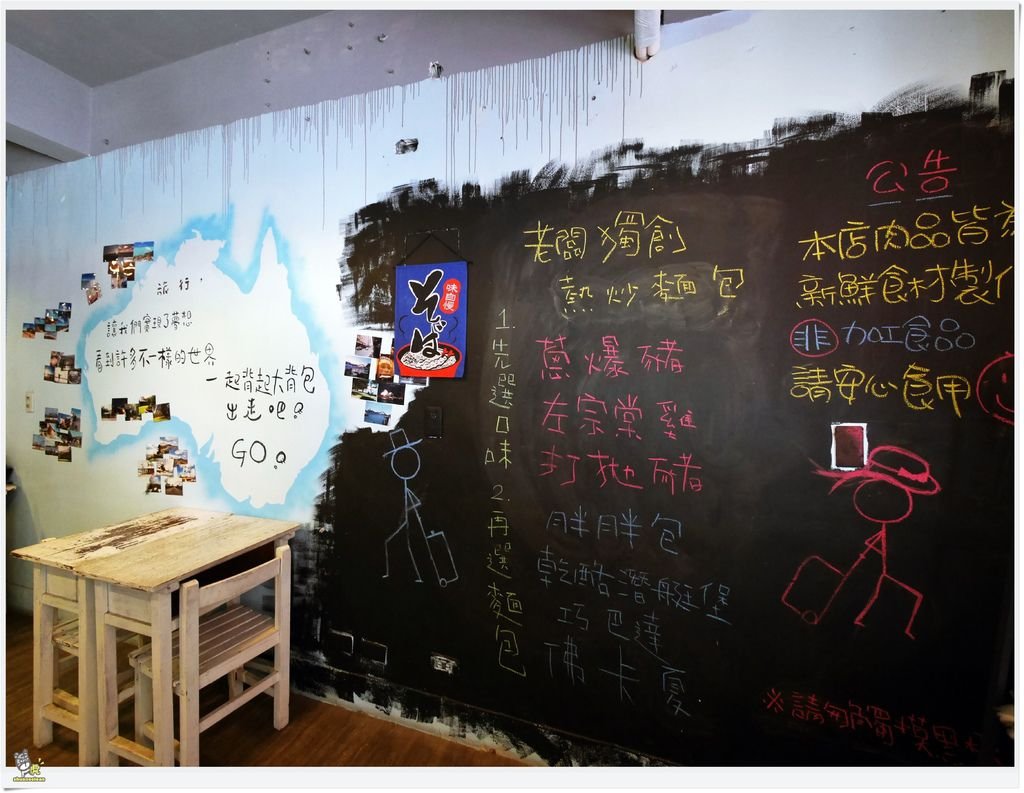 旅行，
讓我們實現了夢想
看到許多不一樣的世界
一起背起大背包
出走吧？
GO。
味自慢
そば
老闆獨創
熱炒麵包
1.先選口味
蔥爆豬
左宗棠雞
打拋豬
2.再選麵包
胖胖包
乾酪潛艇堡
巧巴達
佛卡夏
公告
本店肉品皆
新鮮食材製
非加工食品
請安心食用
※請勿觸摸